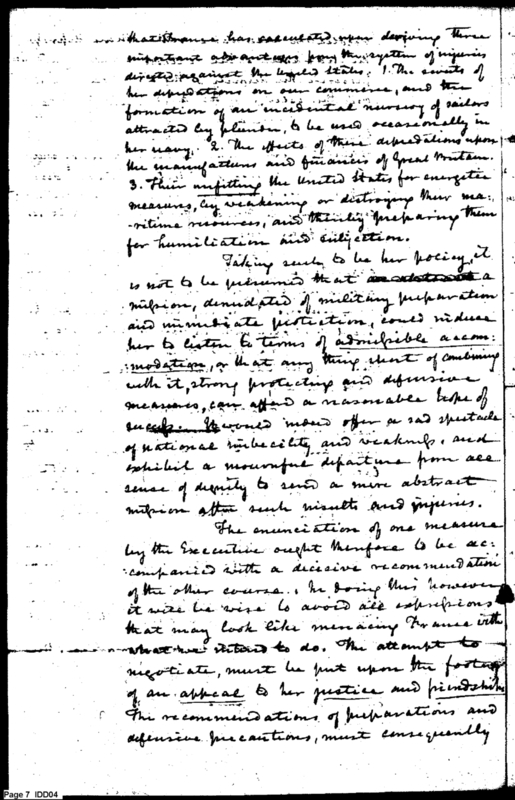 that France has calculated upon deriving three
important advantages from the system of injuries
directed against the United States. 1. The sweets of
her depredations on our commerce, and the
formation of an incidental nursery of sailors
attracted by plunder, to be used occasionally in
her navy. 2. The effects of these depredations upon
the manufactures and finances of Great Britain.
3. Their unfitting the United States for energetic
measures, by weakening or destroying their ma-
ritime resources, and thereby preparing them
for humiliation and subjection.
Taking such to be her policy, it
is not to be presumed that a
mission, denudated of military preparation
and immediate protection, could induce
her to listen to terms of admissible accom-
modation, or that any thing short of combining
with it, strong protecting and defensive
measures, can afford a reasonable hope of
success. It would indeed offer a sad spectacle
of national imbecility and weakness, and
exhibit a mournful departure from all
sense of dignity to send a mere abstract
mission after such insults and injuries.
The enunciation of one measure
by the Executive ought therefore to be ac-
companied with a decisive recommendation
of the other course. In doing this however
it will be wise to avoid all expressions
that may look like menacing France with
what we intend to do. The attempt to
negotiate, must be put upon the footing
of an appeal to her justice and friendship.
The recommendations of preparations and
defensive precautions, must consequently
Page 7 IDD04